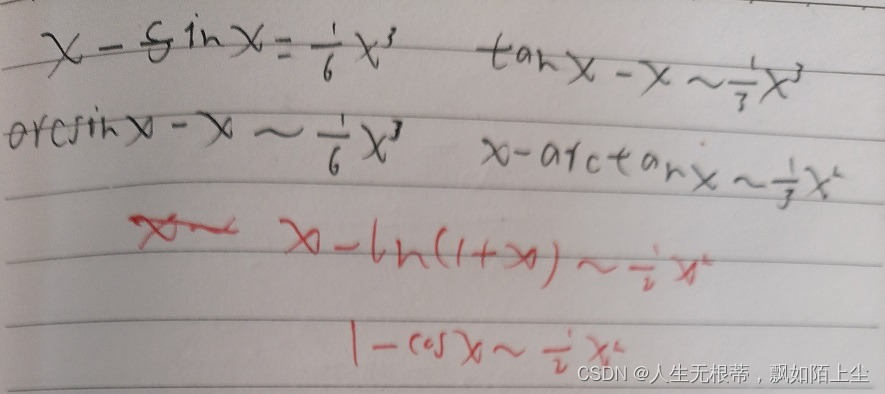 x - sin x = 1/6 x³    tan x - x ~ 1/3 x³
arcsin x - x ~ 1/6 x³    x - arctan x ~ 1/3 x²
x - ln(1+x) ~ 1/2 x²
1 - cos x ~ 1/2 x²
CSDN @人生无根蒂，飘如陌上尘